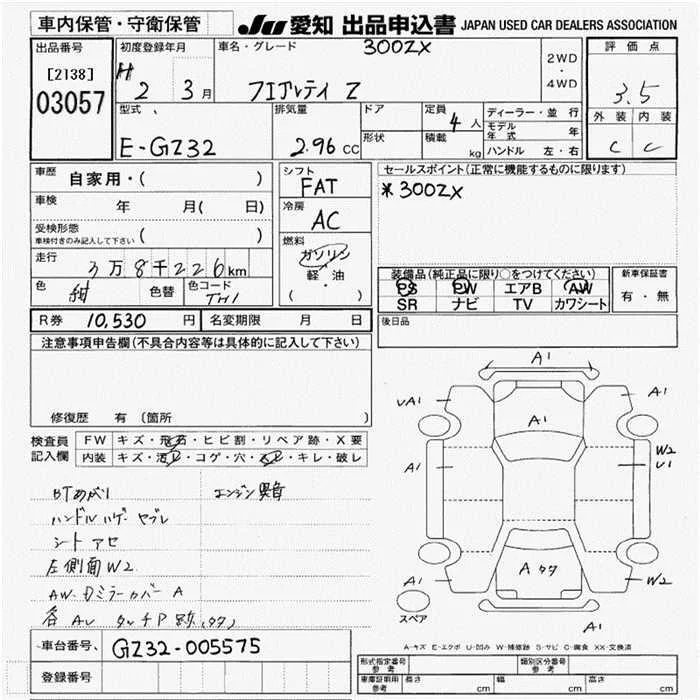 車内保管・守衛保管
JU 愛知 出品申込書 JAPAN USED CAR DEALERS ASSOCIATION
出品番号
[2138]
03057
初度登録年月
H 2 3月
車名・グレード 300ZX
フェアレディ Z
2WD
・
4WD
評価点
3.5
外装 内装
C C
型式
E-GZ32
排気量
2.96 CC
ドア
形状
定員 4人
積載 kg
ディーラー・並行
モデル年式 年
ハンドル 左・右
車歴 自家用・( )
車検 年 月( 日)
受検形態 ( )
車検付きのみ記入して下さい
走行 3万8千226km
色 紺 色替 色コード TH1
シフト
FAT
冷房
AC
燃料
ガソリン
軽・油
( ・ )
セールスポイント(正常に機能するものに限ります)
*300ZX
装備品(純正品に限り○をつけてください)
PS PW エアB AW
SR ナビ TV カワシート
新車保証書
有・無
後日品
R券 10,530 円 名変期限 月 日
注意事項申告欄(不具合内容等は具体的に記入して下さい)
修復歴 有 (箇所 )
検査員
記入欄
FW キズ・飛石・ヒビ割・リペア跡・X要
内装 キズ・汚レ・コゲ・穴・スレ・キレ・破レ
BTあがり エンジン異音
ハンドルハゲ ヤブレ
シート アセ
左側面W2
AW・Dミラーカバー A
各AU タッチP跡(タタ)
車台番号、 GZ32-005575
登録番号
A1
UA1
A1
A1
W2
U1
A1
A1
Aタタ
W2
A1
スペア
A-キズ E-エクボ U-凹み W-補修跡 S-サビ C-腐食 XX-交換済
形式指定番号
参考
類別区分番号
参考
車庫証明用
参考
長さ cm 幅 cm 高さ cm